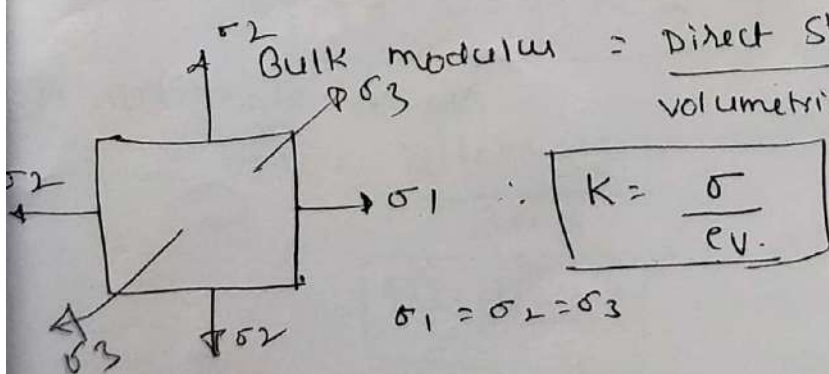 σ2
Bulk modulus = Direct
volumetri
σ3
σ2
σ1 ∴ K = σ / ev.
σ1 = σ2 = σ3
σ3
σ2